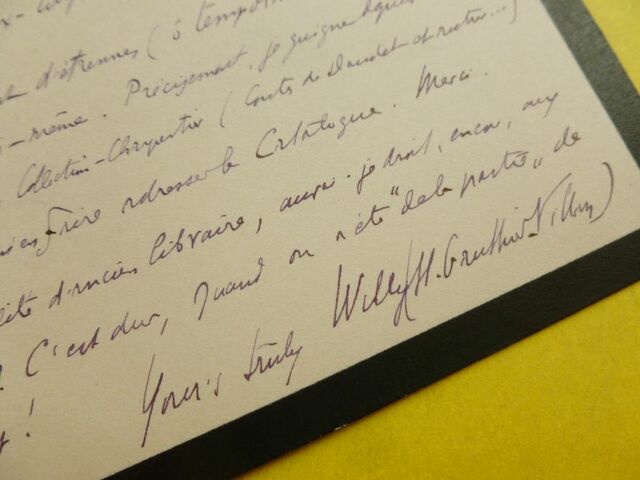 d'étrennes (ô tempora
-même. Précisément, je guigne
Collection-Charpentier (Contes de Daudet et autres...)
faire adresser le Catalogue. Merci.
d'ancien libraire, aurai-je droit, encor, aux
? C'est dur, quand on a été "de la partie" de
! Your's truly Willy (H. Gauthier-Villars)